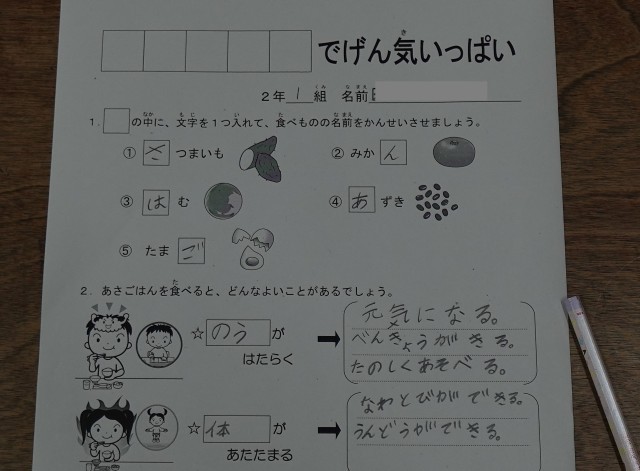 でげん気いっぱい
2年 1 組 名前
1. の中に、文字を1つ入れて、食べものの名前をかんせいさせましょう。
① さつまいも ② みかん
③ はむ ④ あずき
⑤ たまご
2. あさごはんを食べると、どんなよいことがあるでしょう。
☆ のう が はたらく
元気になる。
べんきょうがきる。
たのしくあそべる。
☆ 体 が あたたまる
なわとびができる。
うんどうができる。